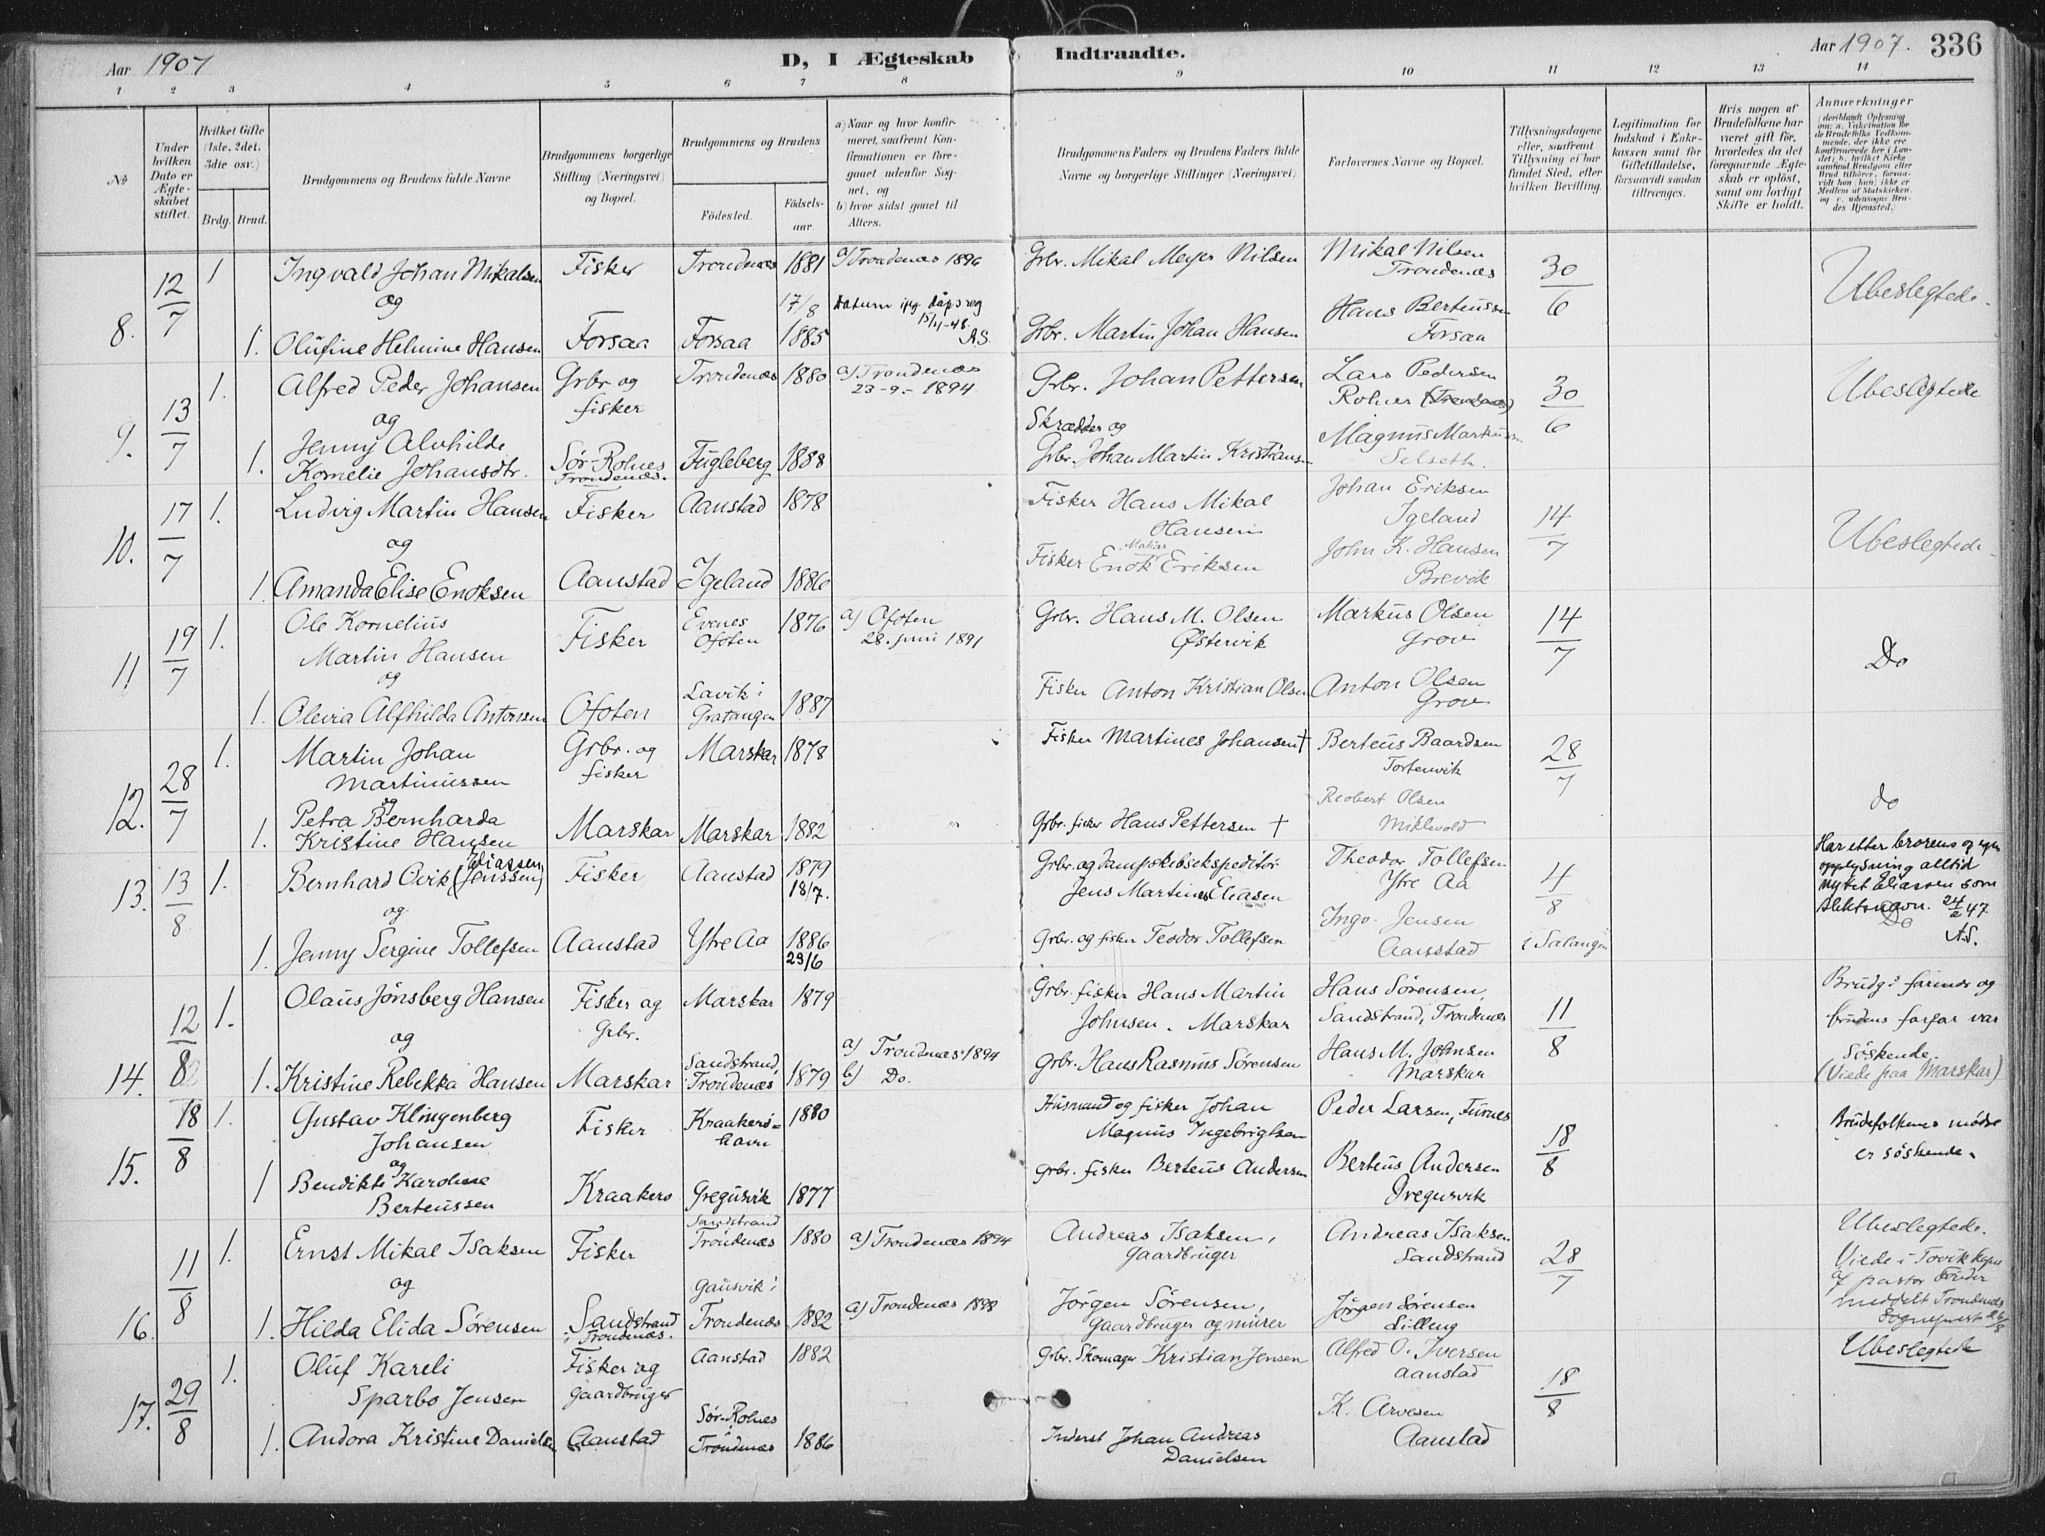 Aar 1907
D, I Ægteskab Indtraadte.
Aar 1907. 336
1 2 3 4 5 6 7 8 9 10 11 12 13 14
No
Under hvilken Dato er Ægteskabet stiftet.
Hvilket Gifte (1ste, 2det, 3die osv.)
Brdg. Brud.
Brudgommens og Brudens fulde Navne
Brudgommens borgerlige Stilling (Næringsvei) og Bopæl.
Brudgommens og Brudens
Fødested.
Fødselsaar.
a) Naar og hvor konfirmeret, saafremt Konfirmationen er foregaaet udenfor Sognet, og
b) hvor sidst gaaet til Alters.
Brudgommens Faders og Brudens Faders fulde Navne og borgerlige Stillinger (Næringsvei)
Forlovernes Navne og Bopæl.
Tillysningsdagene eller, saafremt Tillysning ei har fundet Sted, efter hvilken Bevilling.
Legitimation for Indskud i Enkekassen samt for Giftetilladelse, forsaavidt saadan tiltrænges.
Hvis nogen af Brudefolkene har været gift før, hvorledes da det foregaaende Ægteskab er opløst, samt om lovligt Skifte er holdt.
Anmærkninger
(deriblandt Oplysning om: a. Vakcination for de Brudefolks Vedkommende, der ikke ere konfirmerede her i Landet; b. hvilket Kirkesamfund Brudgom eller Brud tilhører, forsaavidt han (hun) ikke er Medlem af Statskirken, og c. udensogns Brudes Hjemsted.)
8. 12/7 1 Ingvald Johan Mikalsen Fisker Trondenæs 1881 a) Trondenæs 1896 Grbr. Mikal Meyer Nilsen Mikal Nilsen Trondenæs 30/6 Ubeslegtede.
og 17/8 Datum ifg. dåpsreg 15/11-48. AS.
1. Olufine Helmine Hansen Forsaa Forsaa 1885 Grbr. Martin Johan Hansen Hans Berteussen Forsaa
9. 13/7 1. Alfred Peder Johansen Grbr og fisker Trondenæs 1880 a) Trondenæs 23-9.- 1894 Grbr. Johan Pettersen Lars Pedersen Rolnes (Trondenæs) 30/6 Ubeslegtede
og
1. Jenny Alvhilde Kornelie Johansdtr. Sør-Rolnes Trondenæs. Fugleberg 1888 Skrædder og Grbr. Johan Martin Kristiansen Magnus Markussen Selseth.
10. 17/7 1. Ludvig Martin Hansen Fisker Aanstad 1878 Fisker Hans Mikal Hansen Johan Eriksen Igeland 14/7 Ubeslegtede.
og
1. Amanda Elise Enoksen Aanstad Igeland 1886 Fisker Enok Eriksen John K. Hansen Brevik
11 19/7 1. Ole Kornelius Martin Hansen Fisker Evenes Ofoten 1876 a) Ofoten 28. juni 1891 Grbr. Hans M. Olsen Østervik Markus Olsen Grov 14/7 Do
og
1. Olevia Alfhilda Antonsen Ofoten Lavik i Gratangen 1887 Fisker Anton Kristian Olsen Anton Olsen Grov
12. 28/7 1. Martin Johan Martinussen Grbr. og fisker Marskar 1878 Fisker Martines Johansen † Berteus Baardsen Tortenvik 28/7 do
og
1. Petra Bernharda Kristine Hansen Marskar Marskar 1882 Grbr. fisker Hans Pettersen † Reobert Olsen Miklevold
13. 13/8 1. Bernhard Ovik (Jenssen) Eliassen Fisker Aanstad 1879 18/7. Grbr. og Dampskibsekspeditør Jens Martines Eliasen Theodor Tollefsen Ytre Aa 4/8 Har etter brorens og egen opplysning alltid nyttet Eliassen som slektsnavn. 24/2 47. A.S.
og Do
1. Jenny Sergine Tollefsen Aanstad Ytre Aa 1886 29/6 Grbr. og fisker Teodor Tollefsen Ingv. Jensen Aanstad i Salangen
14. 12/8 1. Olaus Jønsberg Hansen Fisker og Grbr. Marskar 1879 Grbr. fisker Hans Martin Johnsen. Marskar Hans Sørensen, Sandstrand, Trondenæs 11/8 Brudg.s farmor og brudens farfar var Søskende. (Viede paa Marskar)
og
1. Kristine Rebekka Hansen Marskar Sandstrand, Trondenæs 1879 a) Trondenæs 1894 b) Do. Grbr. Hans Rasmus Sørensen Hans M. Johnsen Marskar
15. 18/8 1. Gustav Klingenberg Johansen Fisker Kraakerøhavn 1880 Husmand og fisker Johan Magnus Ingebrigtsen Peder Larsen, Furnes 18/8 Brudefolkenes mødre er søskende.
og
1 Bendikte Karoline Berteussen Kraakerø Gregusvik 1877 Grbr. fisker Berteus Andersen Berteus Andersen Gregusvik
16. 11/8 1. Ernst Mikal Isaksen Fisker Sandstrand Trondenæs 1880 a) Trondenæs 1894 Andreas Isaksen, Gaardbruger Andreas Isaksen Sandstrand 28/7 Ubeslegtede. Viede i Torvik af pastor meddelt Trondenæs
og
1. Hilda Elida Sørensen Sandstrand i Trondenæs. Gausvik i Trondenæs 1882 a) Trondenæs 1898 Jørgen Sørensen, Gaardbruger og murer Jørgen Sørensen
17. 29/8 1. Oluf Kareli Sparbo Jensen Fisker og Gaardbruger Aanstad 1882 Grbr. Skomager Kristian Jensen Alfred O. Iversen Aanstad 18/8 Ubeslegtede
1. Andora Kristine Danielsen Aanstad Sør-Rolnes i Trondenæs 1886 Inderst Johan Andreas Danielsen K. Arvesen Aanstad